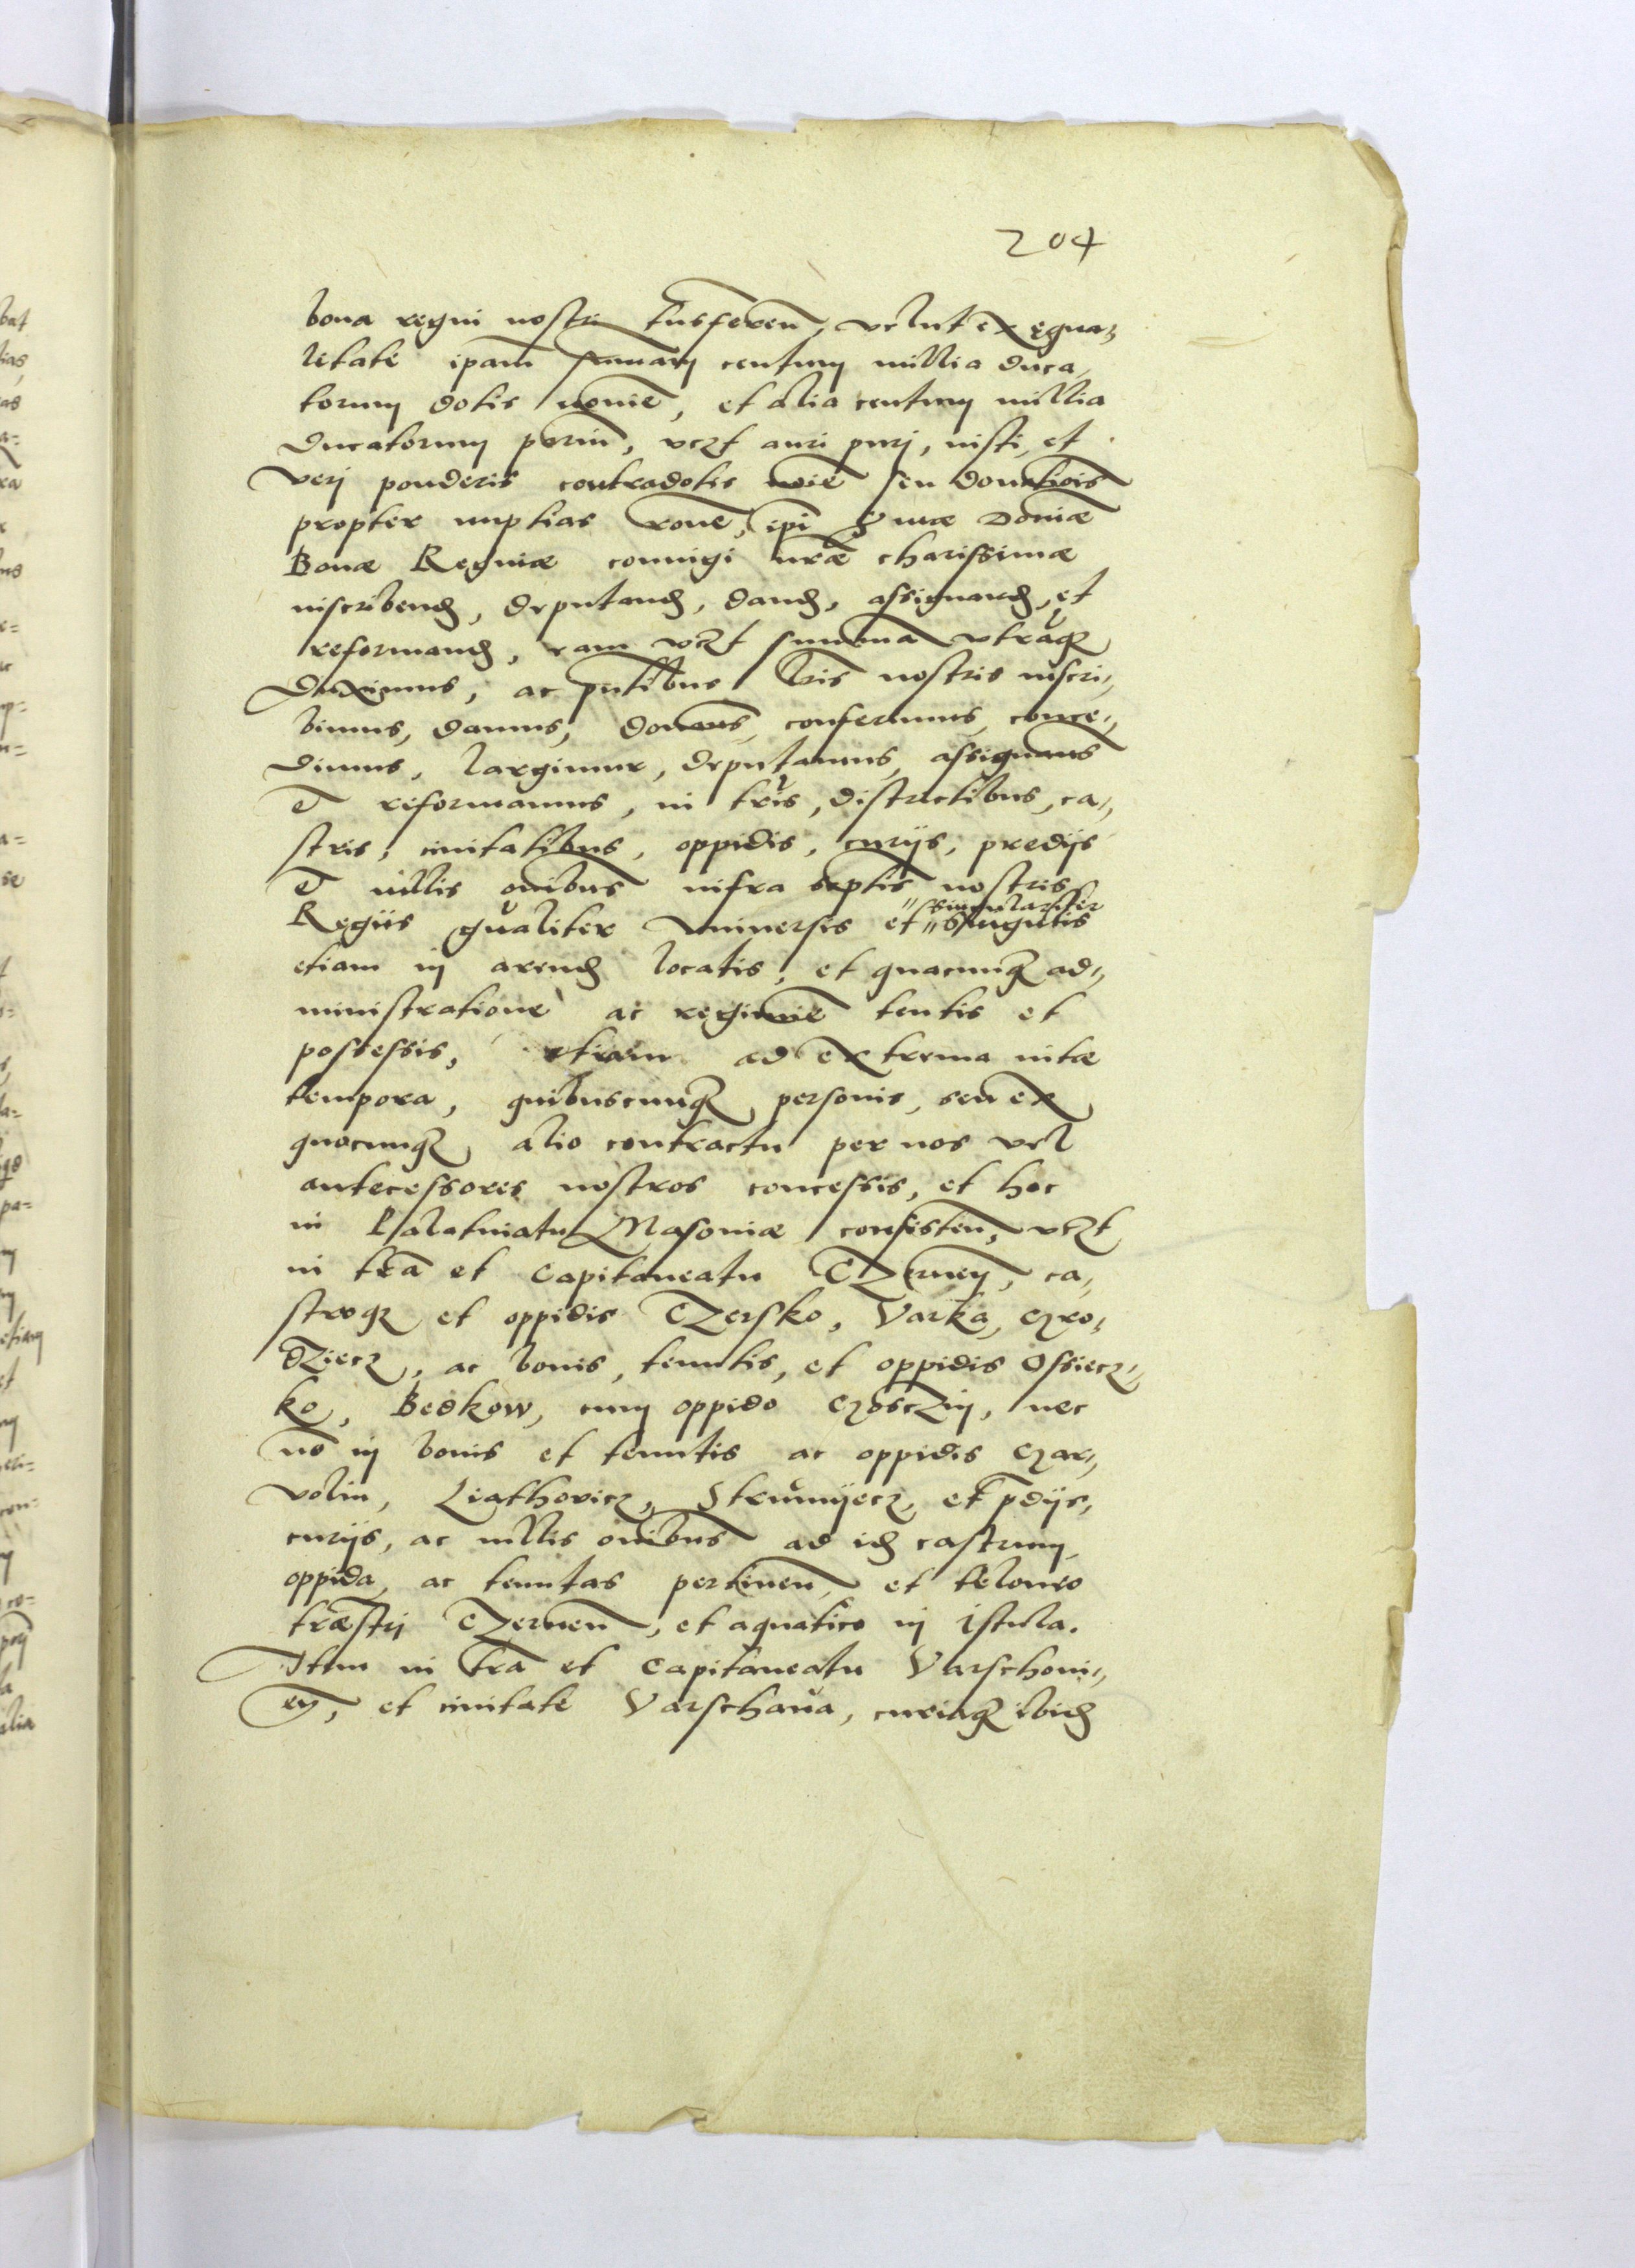 204
bona regni nostri trāsferen̄, velut ex ęqua-
litate ipam̄ summam centum millia duca-
torum dotis nomīe, et alia centum millia
ducatorum parim̄, vcꝫt auri puri, iusti, et
verj ponderis contradotis noīe seu donatiōis
propter nuptias rōne, ipi S mtæ Domīæ
Bonæ Reginæ coniugi nr̄æ charissimæ
inscribend, deputand, dand, assignand, et
reformand, eam vcꝫt summā vtramqꝫ
duximus, ac pn̄tibus lr̄is nostris inscri-
bimus, damus, donam̄us, conferimus, conce-
dimus, largimur, deputamus, assignam̄us
Et reformamus, in tr̄is, districtibus, ca-
stris, ciuitatibus, oppidis, curijs, predijs
Et villis om̄ibus infra scptis nostris
Regiis qualiter vniuersis et singulis
singulariter
etiam in arend locatis, et quacunqꝫ ad-
ministratione ac regimīe tentis et
possessis, etiam ad extrema vitæ
tempora, quibuscunqꝫ personis, seu ex
quocunqꝫ alio contractu per nos vel
antecessores nostros concessis, et hoc
in Palatinatu Masoniæ consisten̄, vcꝫt
in tr̄a et Capitaneatu CZernen̄, ca-
stroqꝫ et oppidis CZersko, Varka, Gro-
dZiecz, ac bonis, tenutis, et oppidis Ossiecz-
ko, Bedkow, cum oppido GosczZin, nec
nō in bonis et tenutis ac oppidis Gar-
volin, Liathovicz, Strumijecz, et p̄dijs,
curijs, ac villis om̄ibus ad id castrum,
oppida, ac tenutas pertinen̄, et teloneo
tr̄æstri CZernen̄, et aquatico in Istula.
Item in tr̄a et Capitaneatu Varschoui-
en̄, et ciuitate Varschaua, curiaqꝫ ibid